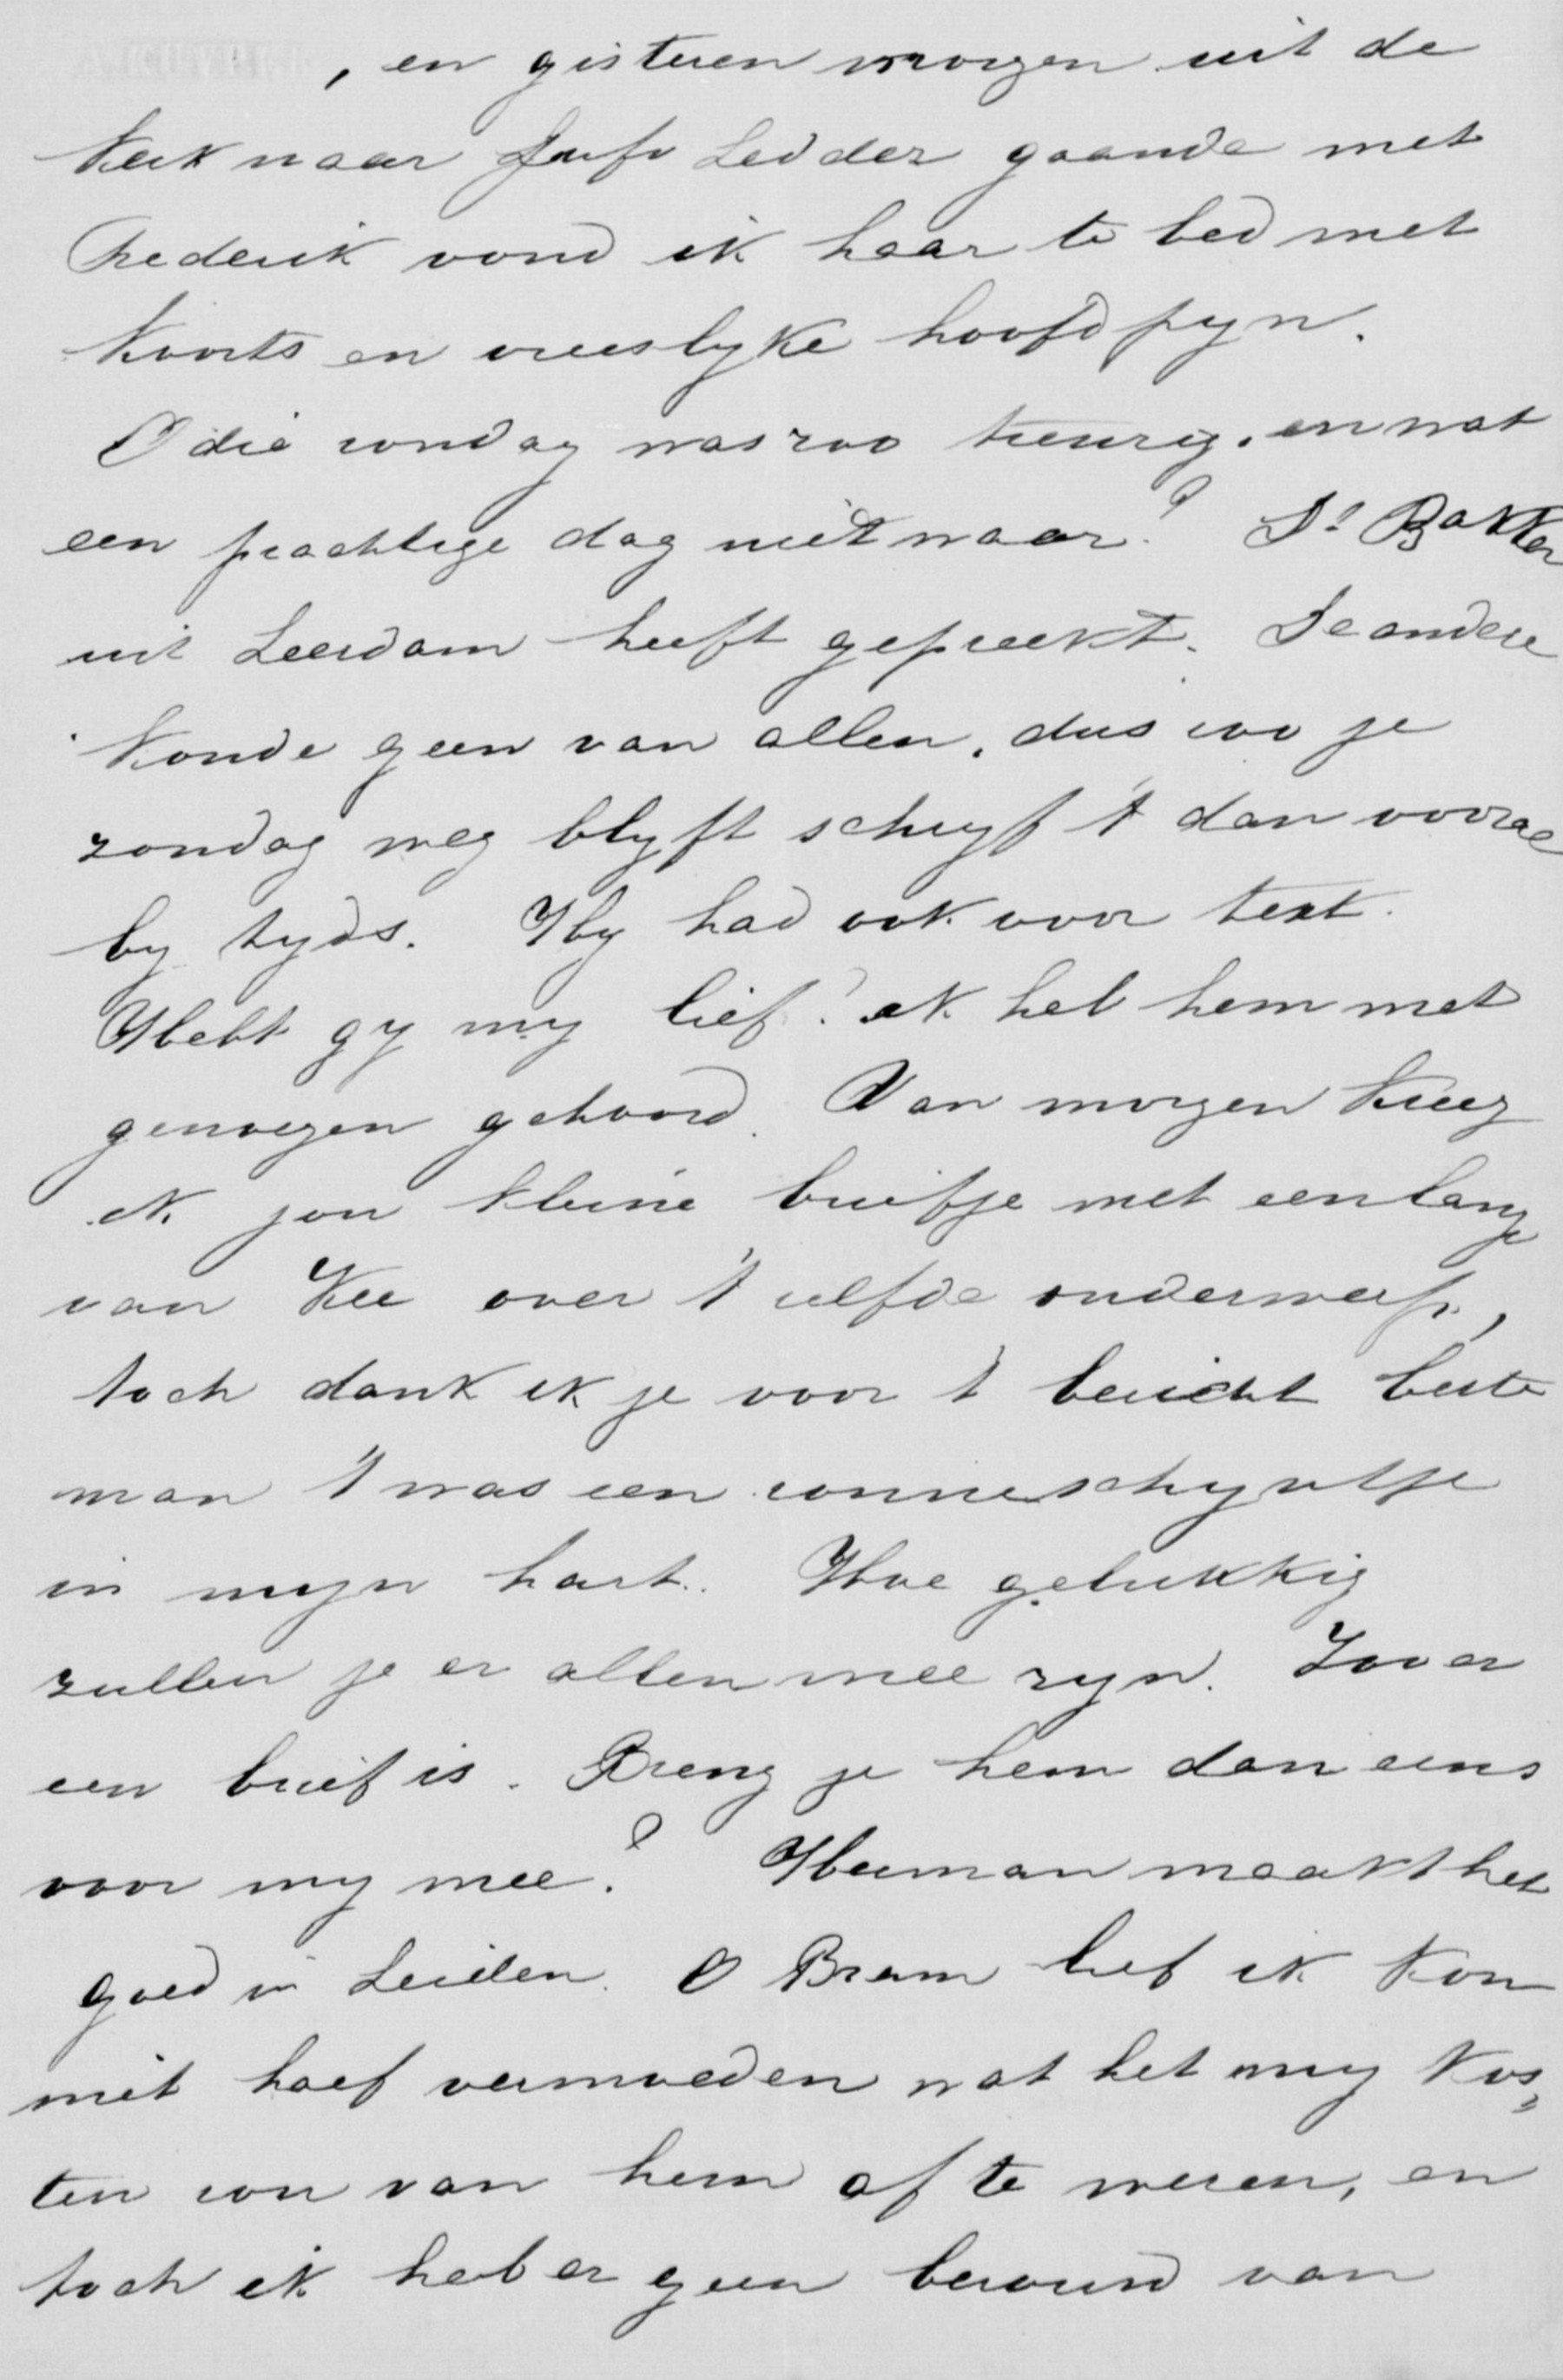 , en gisteren morgen uit de
Kerk naar Jufr Ledder gaande met
Frederik vond ik haar te bed met
Koorts en vreeslyke hoofdpyn.
O die zondag was zoo treurig. en wat
een prachtige dag niet waar? Ds Bakker
uit Leerdam heeft gepreekt. De andere
Konde geen van allen, dus zoo je
zondag weg blyft schryf 't dan vooral
by tyds. Hy had ook voor text.
Hebt gy my lief? ik heb hem met
genoegen gehoord. Van morgen Kreeg
ik jou kleine briefje met een lange
van Kee over 't zelfde onderwerp,
toch dank ik je voor 't bericht beste
man 't was een zonneschyntje
in myn hart. Hoe gelukkig
zullen je er allen mee zyn. Zoo er
een brief is. Breng je hem dan eens
voor my mee? Herman maakt het
goed in Leiden. O Bram lief ik Kon
niet half vermoeden wat het my Kos„
ten zou van hem af te wezen, en
toch ik heb er geen berouw van